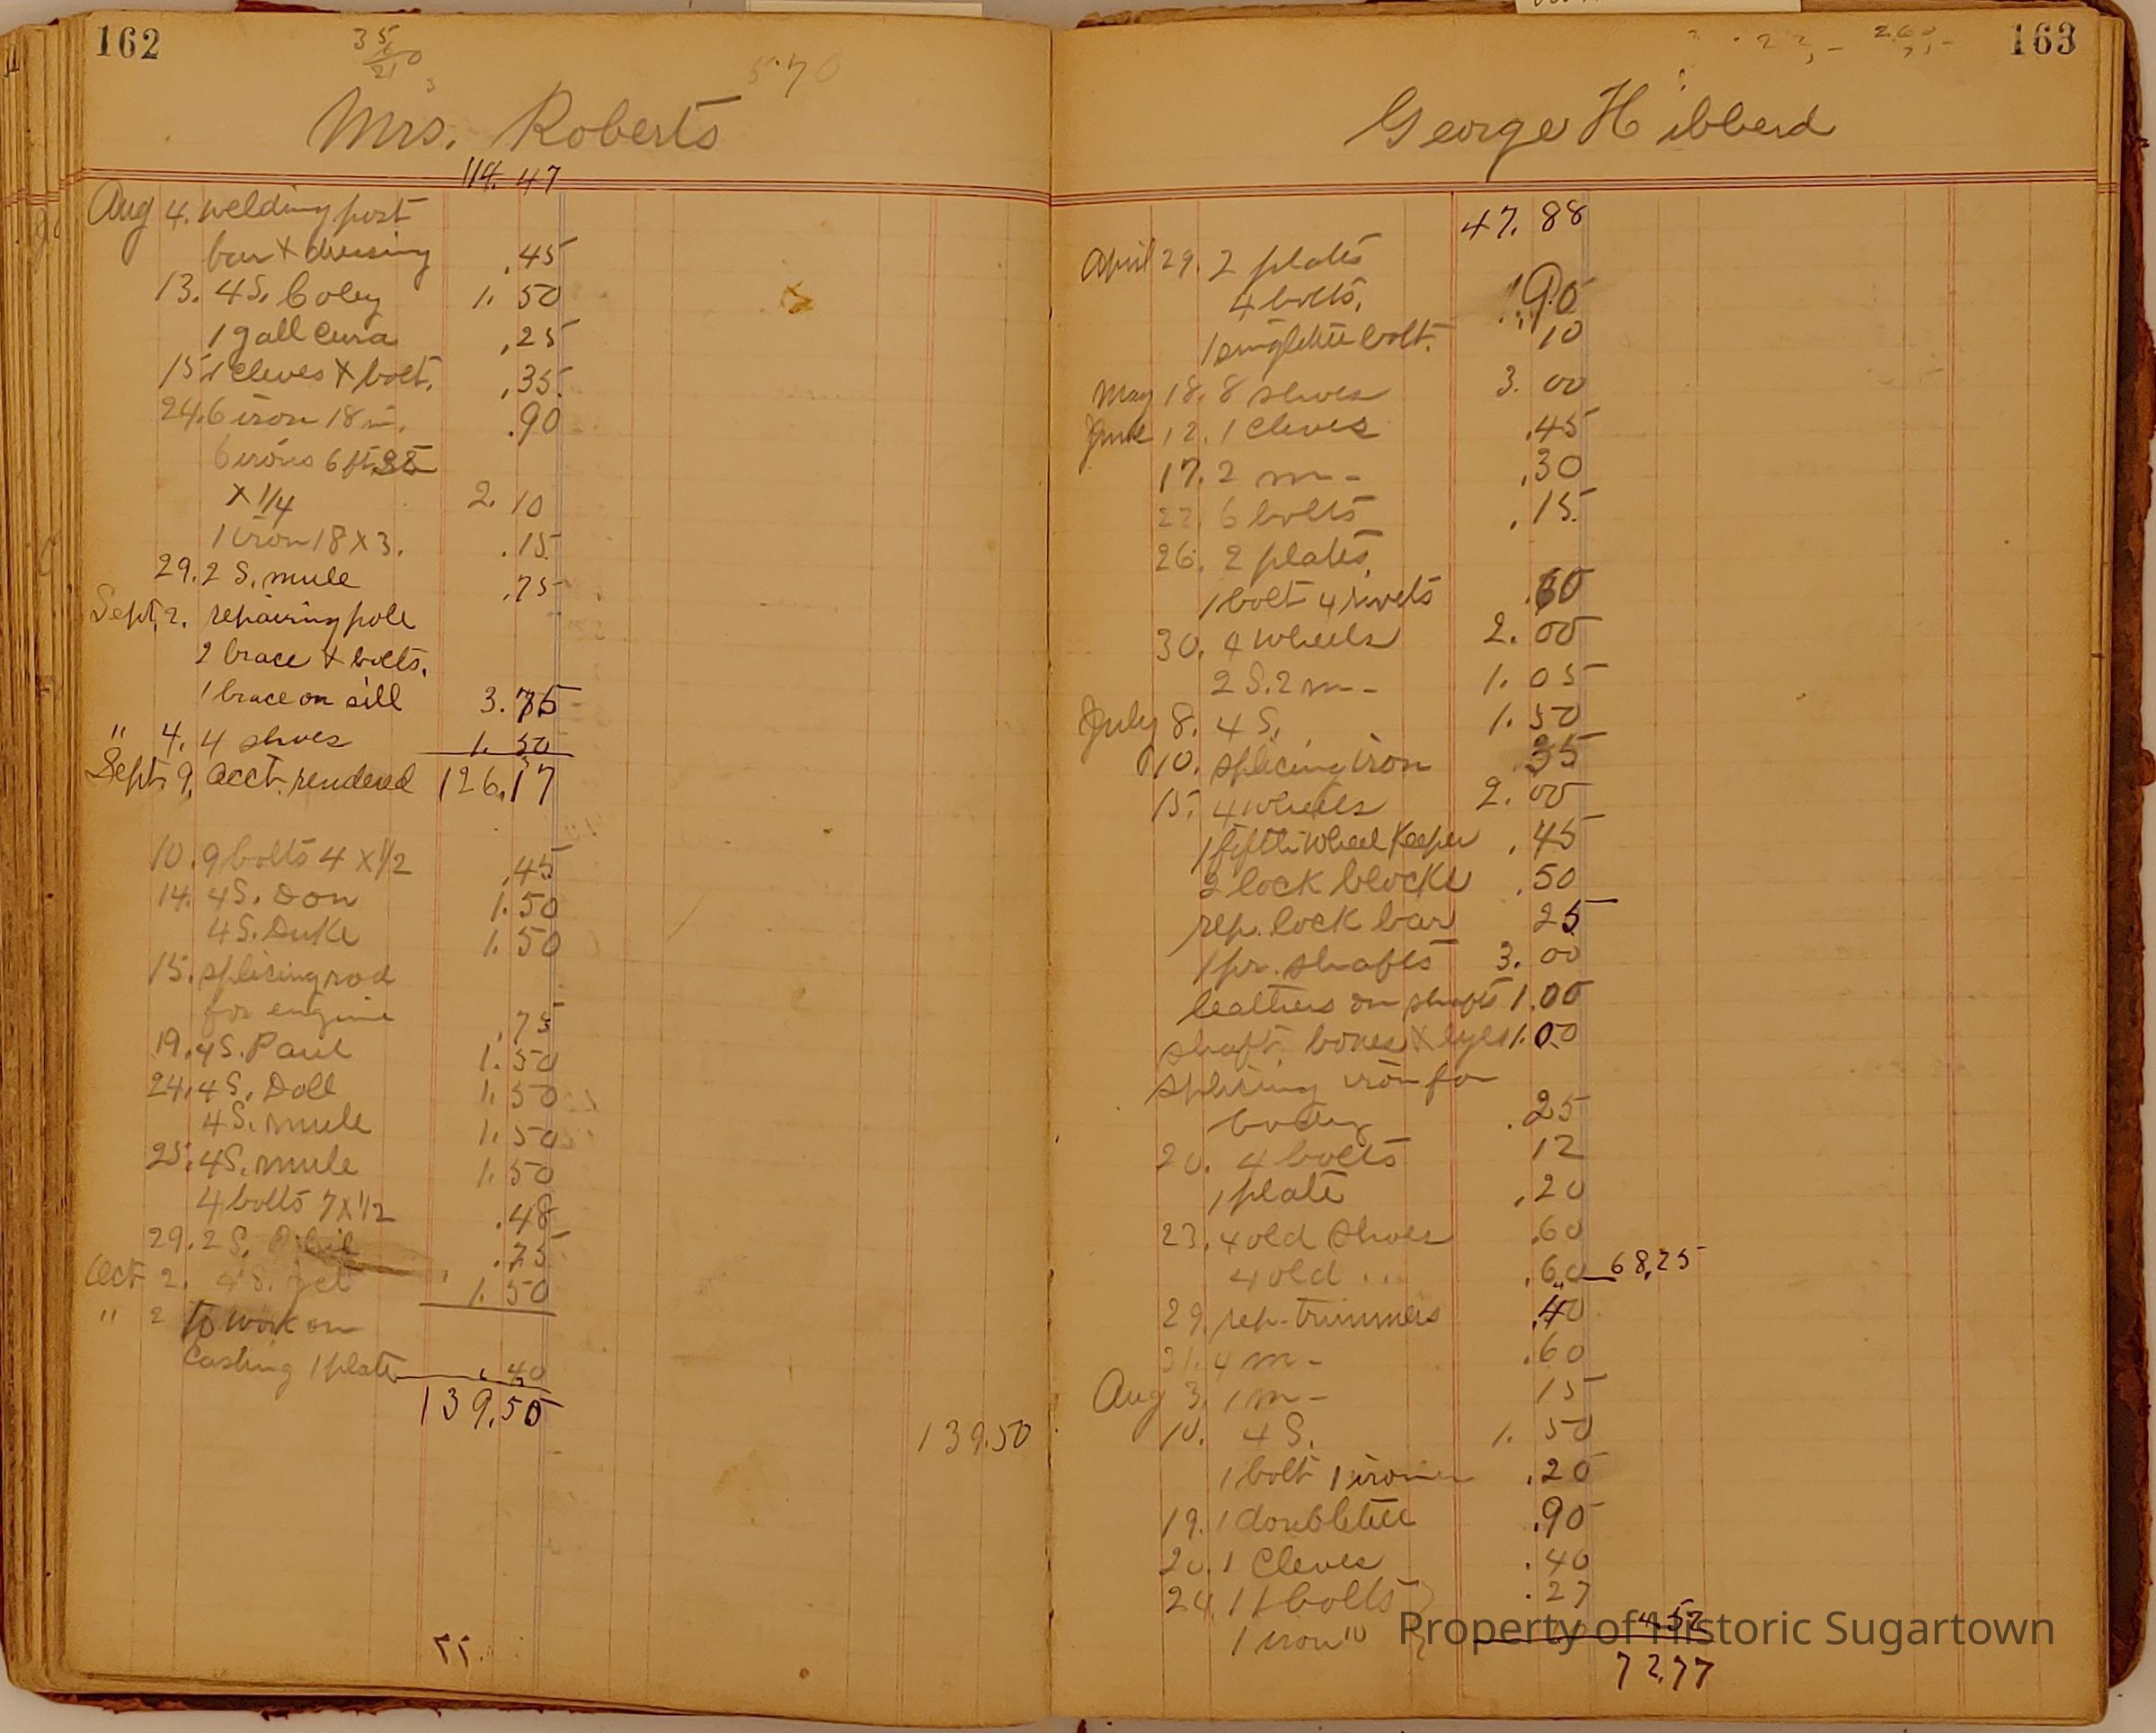 162
35
6
210
5.70
Mrs. Roberts
114.47
Aug 4. welding post
bar & dressing .45
13. 4 S. Coley 1.50
1 gall Cura .25
15. 1 cleves & bolt. .35
24. 6 iron 18 in. .90
6 irons 6 ft
x 1/4 2.10
1 iron 18 x 3. .15
29. 2 S. mule .75
Sept. 2. repairing pole
2 brace & bolts.
1 brace on sill 3.75
" 4. 4 shoes 1.50
Sept. 9. acct. rendered 126.17
10. 9 bolts 4 x 1/2 .45
14. 4 S. Don 1.50
4 S. Duke 1.50
15. splicing rod
for engine .75
19. 4 S. Paul 1.50
24. 4 S. Doll 1.50
4 S. mule 1.50
25. 4 S. mule 1.50
4 bolts 7 x 1/2 .48
29. 2 S. .75
Oct 2. 4 S. Jet 1.50
" 2 To work on
Casting 1 plate .40
139.50
139.50
163
George Hibberd
47.88
April 29. 2 plates
4 bolts. .90
1 singletree bolt. 10
May 18. 8 shoes 3.00
June 12. 1 cleves .45
17. 2 m - .30
22. 6 bolts .15
26. 2 plates,
1 bolt 4 rivets .60
30. 4 wheels 2.00
2 S. 2 m - 1.05
July 8. 4 S. 1.50
10. splicing iron .35
15. 4 wheels 2.00
1 fifth wheel Keeper .45
2 lock blocks .50
rep. lock bar 25
1 pr. shafts 3.00
leathers on shafts 1.00
shaft. boxes & eyes 1.00
splicing iron for
body .25
20. 4 bolts 12
1 plate .20
23. 4 old shoes .60
4 old " .60 68.25
29. rep. trimmers .40
31. 4 m - .60
Aug 3. 1 m - 15
10. 4 S. 1.50
1 bolt 1 iron .20
19. 1 doubletree .90
20. 1 Cleves .40
24. 11 bolts .27
1 iron 4.52
72.77
Property of Historic Sugartown